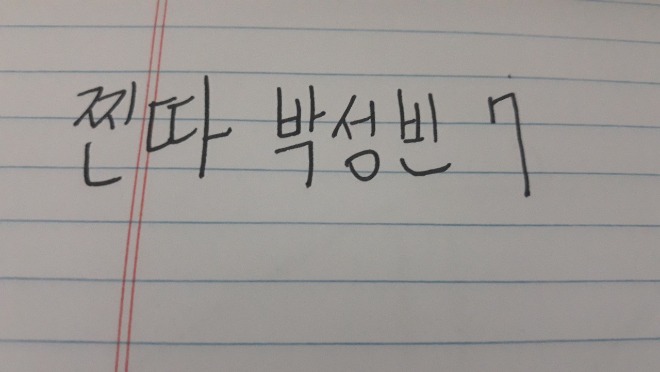 찐따 박성빈 7